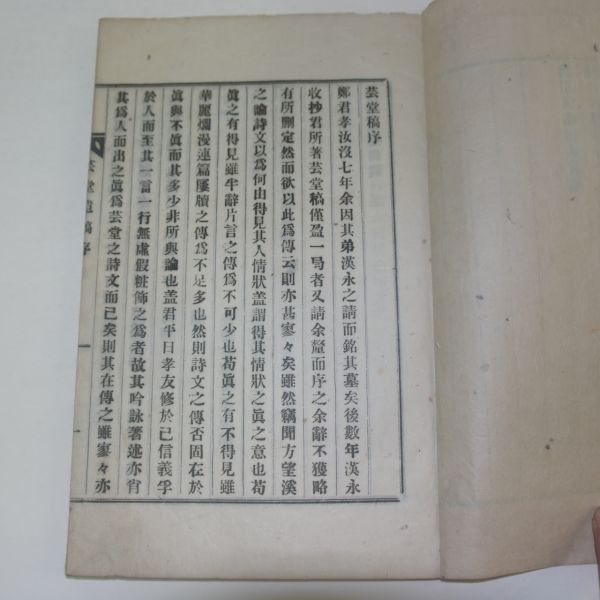 芸堂稿序
鄭君孝汝沒七年余因其弟漢永之請而銘其墓矣後數年漢永
收抄君所著芸堂稿僅盈一咼者又請余釐而序之余辭不獲略
有所刪定然而欲以此爲傳云則亦甚寥々矣雖然竊聞方望溪
之論詩文以爲何由得見其人情狀盖謂得其情狀之眞之意也苟
眞之有得見雖半辭片言之傳爲不可少也苟眞之有不得見雖
華麗爛漫連篇屢牘之傳爲不足多也然則詩文之傳否固在於
眞與不眞而其多少非所與論也盖君平日孝友修於己信義孚
於人而至其一言一行無虛假粧飾之爲者故其吟詠著述亦肖
其爲人而出之眞爲芸堂之詩文而已矣則其在傳之雖寥々亦
芸堂遺稿序
一